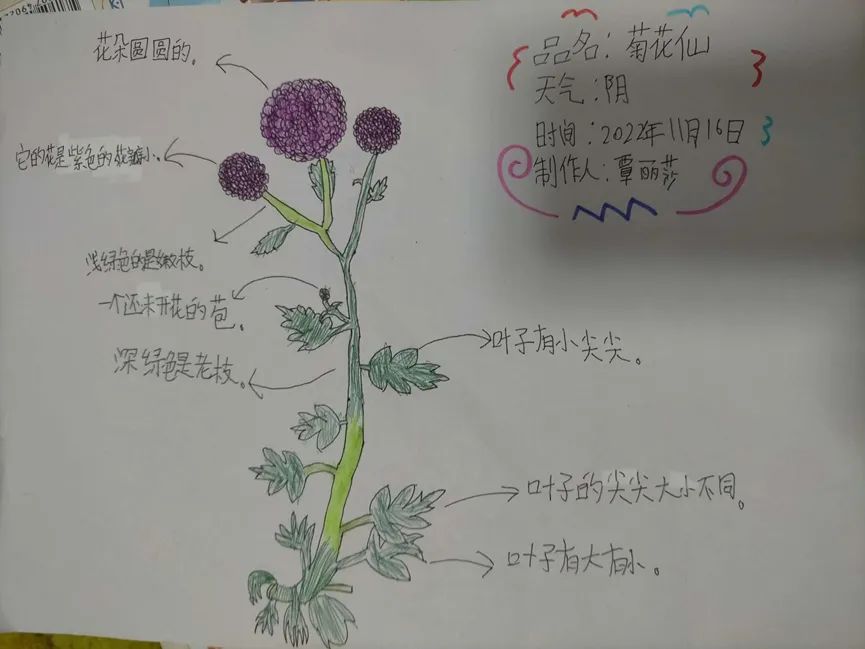 品名：菊花仙
天气：阴
时间：2022年11月16日
制作人：覃丽莎
花朵圆圆的。
它的花是紫色的花瓣小。
浅绿色的是嫩枝。
一个还未开花的苞。
深绿色是老枝。
叶子有小尖尖。
叶子的尖尖大小不同。
叶子有大有小。